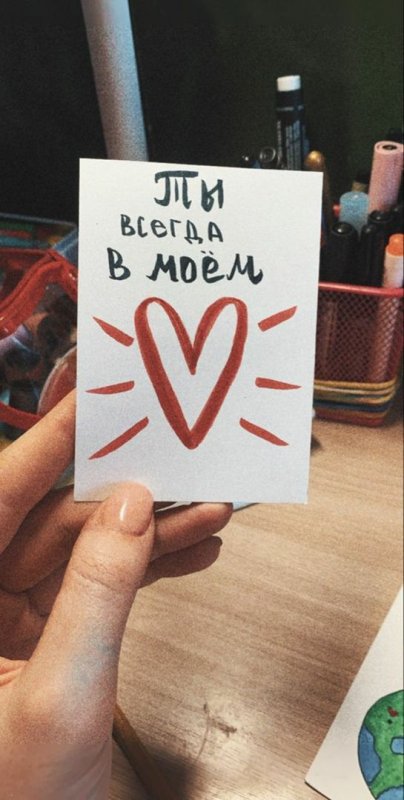 ТЫ
ВСЕГДА
В МОЁМ